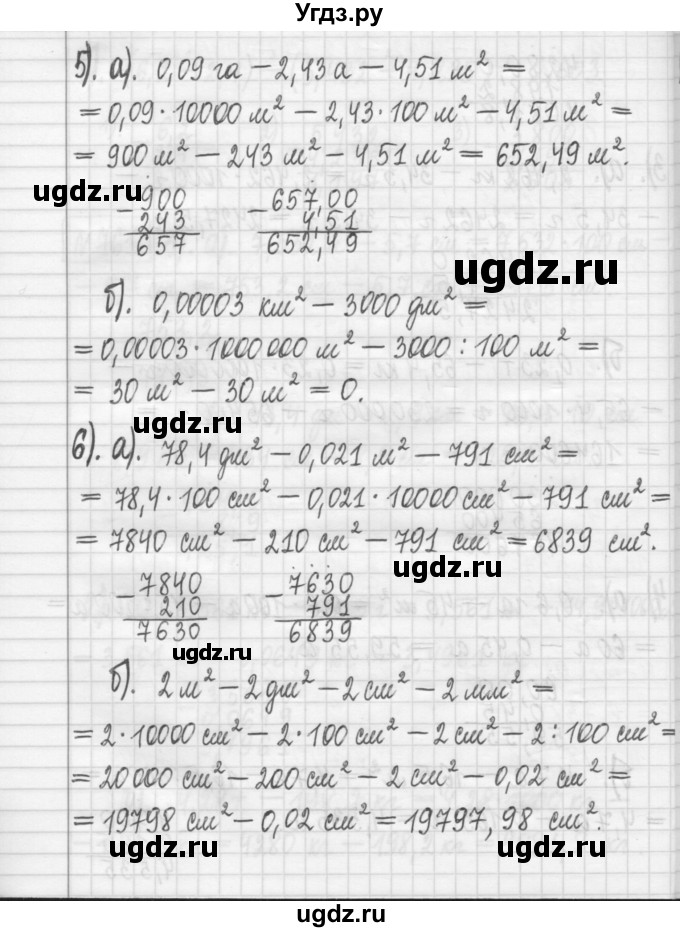 Угдз.ру
5). а). 0,09 га − 2,43 а − 4,51 м² =
= 0,09 · 10000 м² − 2,43 · 100 м² − 4,51 м² =
= 900 м² − 243 м² − 4,51 м² = 652,49 м².
ugdz.ru
− 900 − 657,00
243 4,51
657 652,49
ugdz.ru
ugdz.ru
б). 0,00003 км² − 3000 дм² =
= 0,00003 · 1000 000 м² − 3000 : 100 м² =
= 30 м² − 30 м² = 0.
ugdz.ru
6). а). 78,4 дм² − 0,021 м² − 791 см² =
= 78,4 · 100 см² − 0,021 · 10000 см² − 791 см² =
= 7840 см² − 210 см² − 791 см² = 6839 см².
ugdz.ru
− 7840 − 7630
210 791
7630 6839
ugdz.ru
б). 2 м² − 2 дм² − 2 см² − 2 мм² =
= 2 · 10000 см² − 2 · 100 см² − 2 см² − 2 : 100 см² =
= 20000 см² − 200 см² − 2 см² − 0,02 см² =
= 19798 см² − 0,02 см² = 19797,98 см².
ugdz.ru
ugdz.ru
ugdz.ru